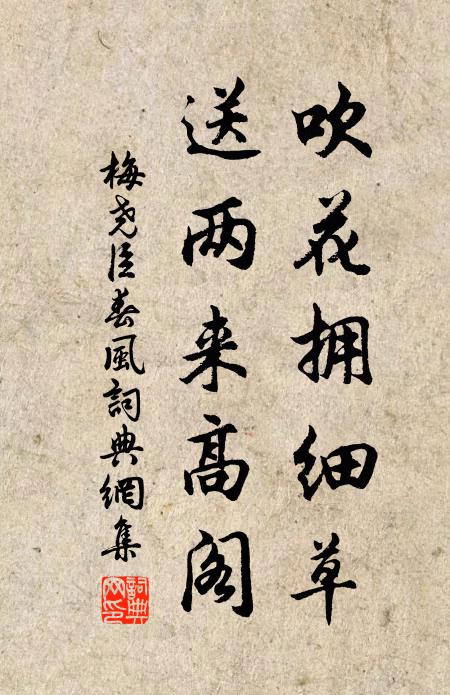 吹花拥细草
送两来高阁
梅尧臣春风词典網集
詞典网印